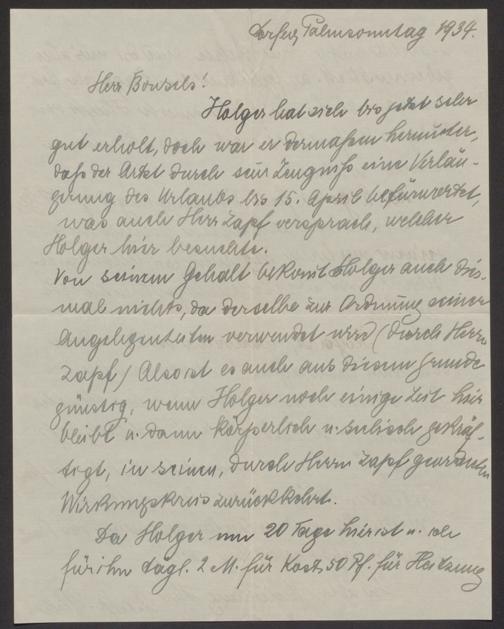 Dorfen, Palmsonntag 1934.
Herr Bonsels!
Holger hat sich bis jetzt sehr
gut erholt, doch war er dermaßen herunter,
daß der Arzt durch sein Zeugniß eine Verlän-
gerung des Urlaubs bis 15. April befürwortet,
was auch Herr Zapf versprach, welcher
Holger hier besuchte.
Von seinem Gehalt bekomt Holger auch dies-
mal nichts, da derselbe zur Ordnung seiner
Angelegenheiten verwendet wird (durch Herrn
Zapf) Also ist es auch aus diesem Grunde
günstig, wenn Holger noch einige Zeit hier
bleibt u. dann körperlich u. seelisch gekräf-
tigt, in seinen, durch Herrn Zapf geordneten
Wirkungskreis zurückkehrt.
Da Holger nun 20 Tage hier ist u. ich
für ihn tägl. 2 M. für Kost, 50 Pf. für Heitzung